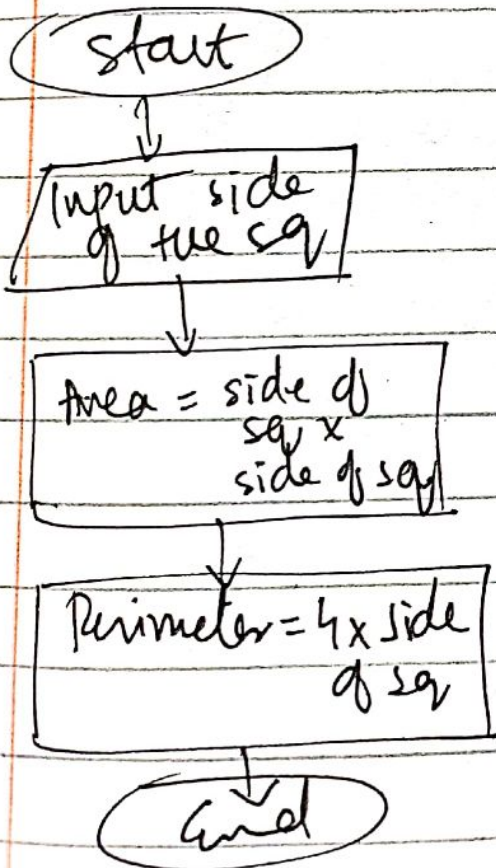 Start
Input side
of the sq
Area = side of
sq x
side of sq
Perimeter = 4 x side
of sq
End